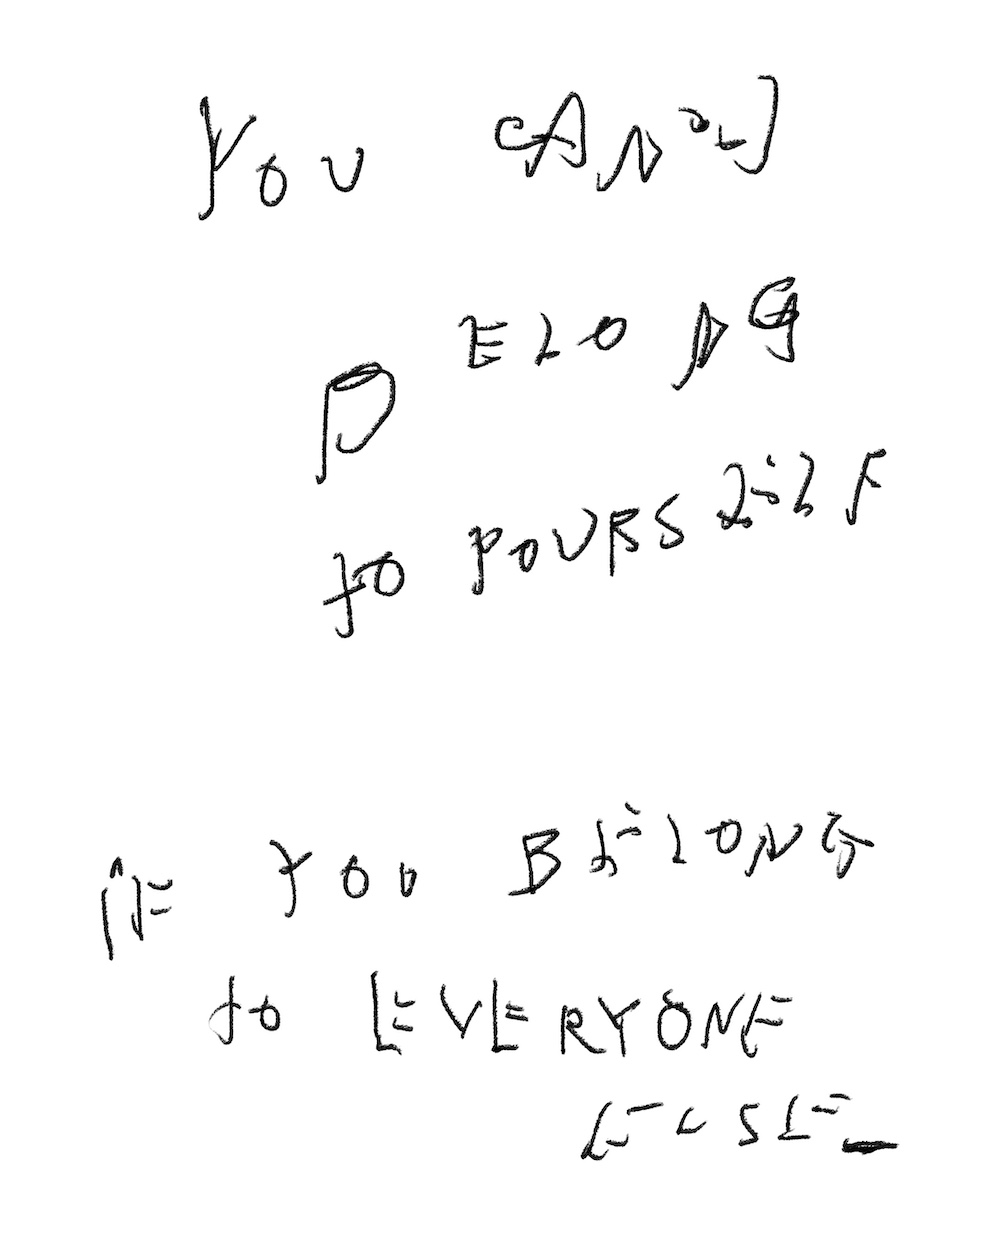 YOU CANNOT
BELONG
TO YOURSELF
IF YOU BELONG
TO EVERYONE
ELSE